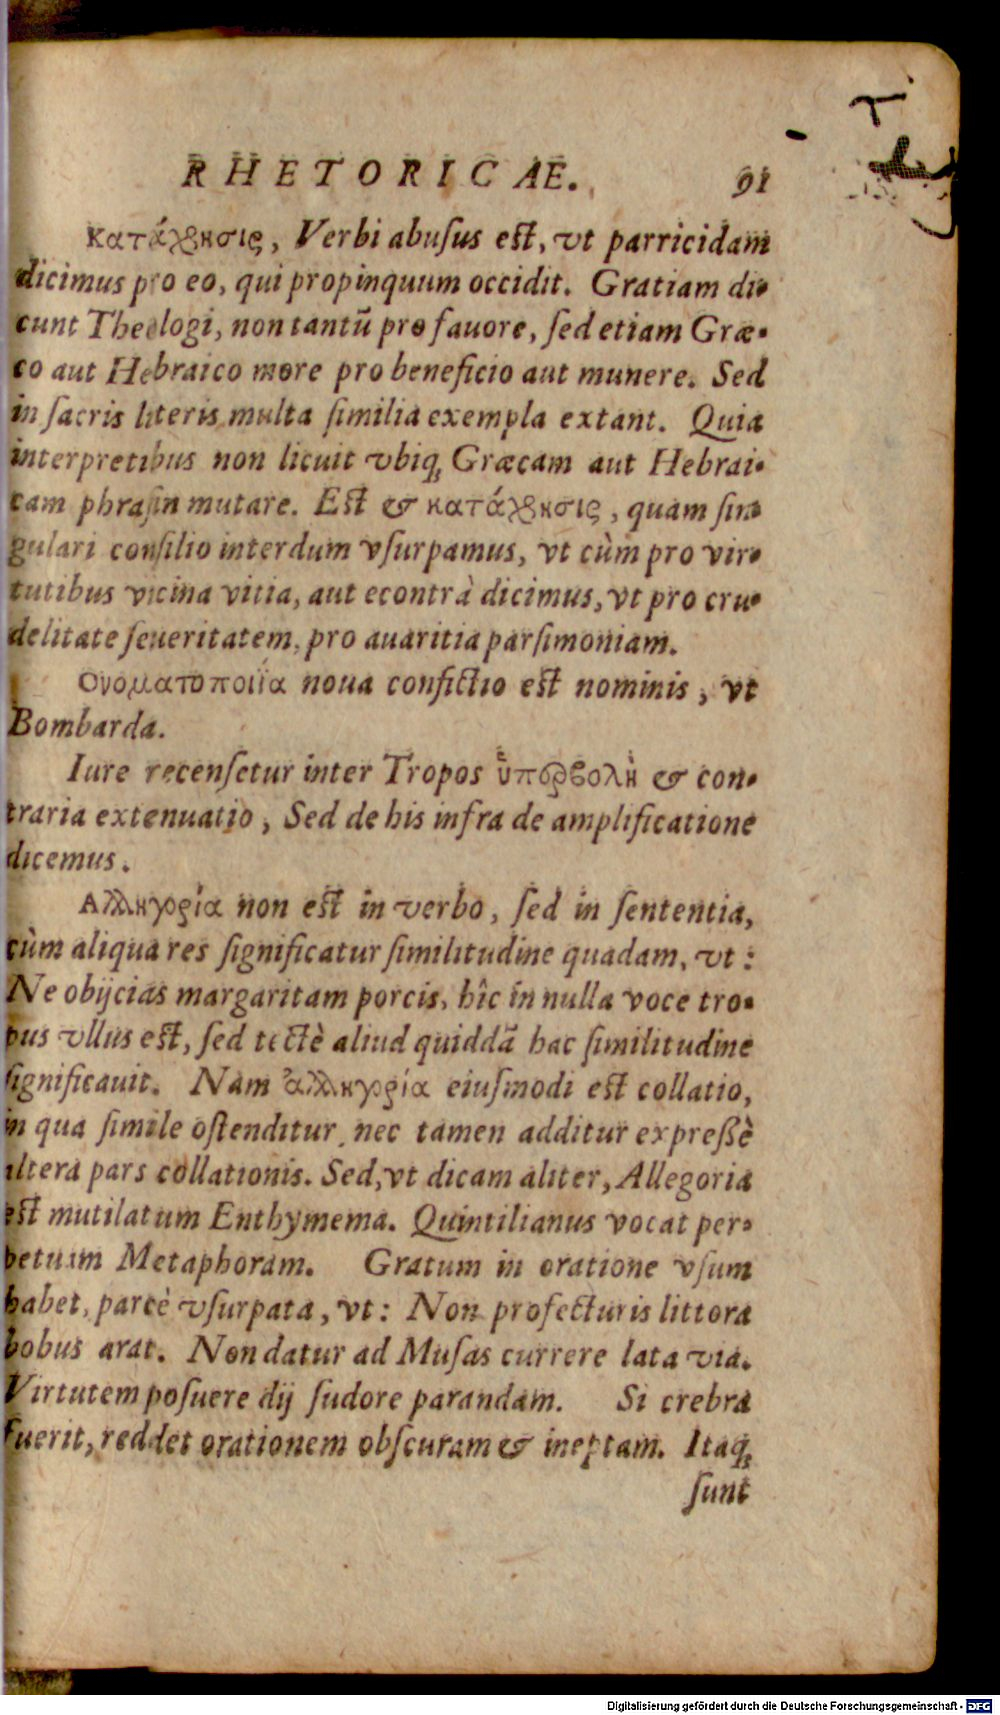 RHETORICAE. 91
κατάχρησις, Verbi abuſus eſt, vt parricidam
dicimus pro eo, qui propinquum occidit. Gratiam di-
cunt Theologi, non tantū pro fauore, ſed etiam Græ-
co aut Hebraico more pro beneficio aut munere. Sed
in ſacris literis multa ſimilia exempla extant. Quia
interpretibus non licuit vbiq; Græcam aut Hebrai-
cam phraſin mutare. Eſt & κατάχρησις, quam ſin-
gulari conſilio interdum vſurpamus, vt cùm pro vir-
tutibus vicina vitia, aut econtrà dicimus, vt pro cru-
delitate ſeueritatem, pro auaritia parſimoniam.
Ονοματοποιΐα noua confictio eſt nominis, vt
Bombarda.
Iure recenſetur inter Tropos ὑπερβολὴ & con-
traria extenuatio, Sed de his infra de amplificatione
dicemus.
Αλληγορία non eſt in verbo, ſed in ſententia,
cùm aliqua res ſignificatur ſimilitudine quadam, vt:
Ne obijcias margaritam porcis, hîc in nulla voce tro-
pus vllus eſt, ſed tectè aliud quiddā hac ſimilitudine
ſignificauit. Nam ἀλληγορία eiuſmodi eſt collatio,
in qua ſimile oſtenditur, nec tamen additur expreßè
altera pars collationis. Sed, vt dicam aliter, Allegoria
eſt mutilatum Enthymema. Quintilianus vocat per-
petuam Metaphoram. Gratum in oratione vſum
habet, parcè vſurpata, vt: Non profecturis littora
bobus arat. Non datur ad Muſas currere lata via.
Virtutem poſuere dij ſudore parandam. Si crebra
fuerit, reddet orationem obſcuram & ineptam. Itaq;
ſunt
Digitalisierung gefördert durch die Deutsche Forschungsgemeinschaft - DFG